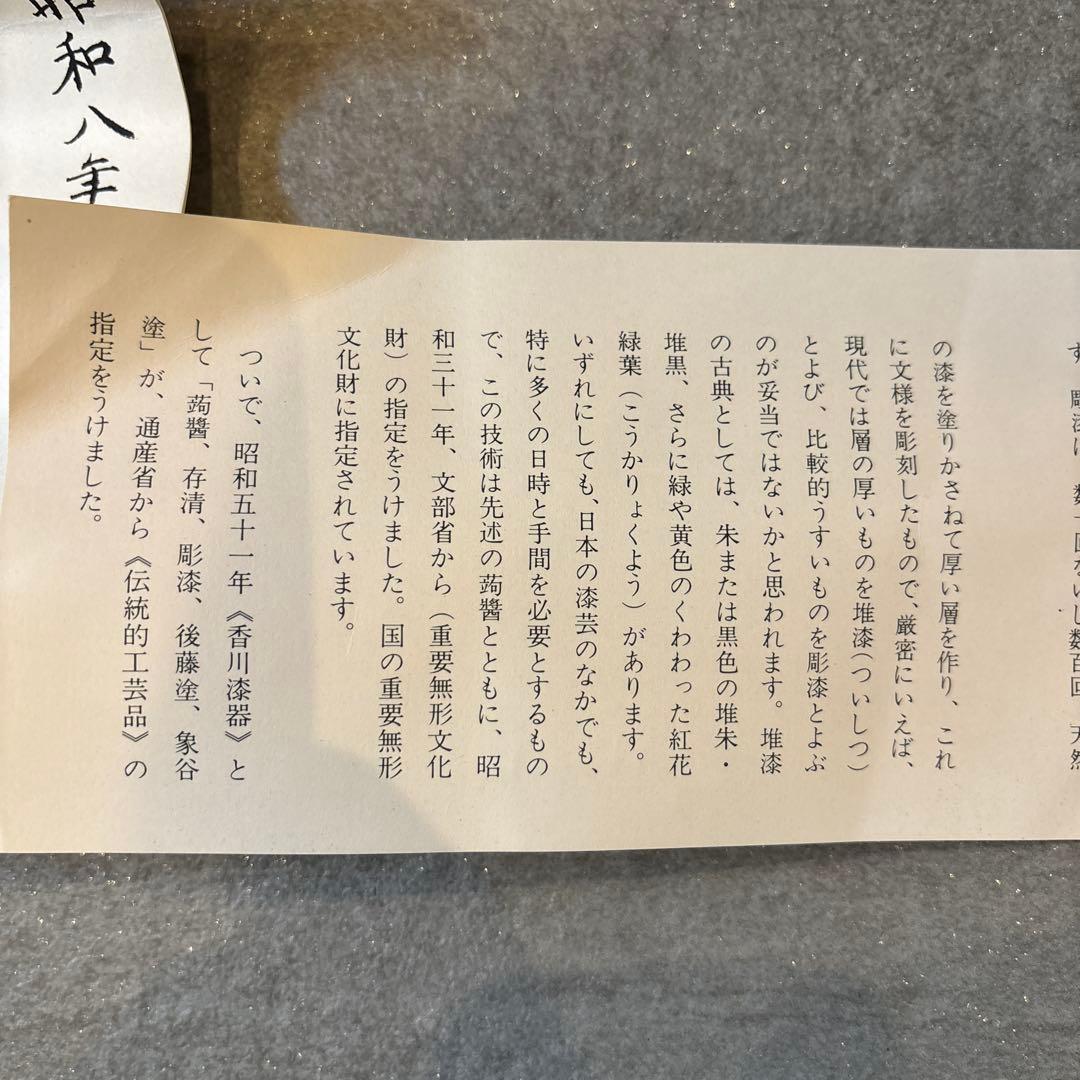 昭和八年
す。彫漆は、数十回ないし数百回、天然
の漆を塗りかさねて厚い層を作り、これ
に文様を彫刻したもので、厳密にいえば、
現代では層の厚いものを堆漆（ついしつ）
とよび、比較的うすいものを彫漆とよぶ
のが妥当ではないかと思われます。堆漆
の古典としては、朱または黒色の堆朱・
堆黒、さらに緑や黄色のくわわった紅花
緑葉（こうかりょくよう）があります。
いずれにしても、日本の漆芸のなかでも、
特に多くの日時と手間を必要とするもの
で、この技術は先述の蒟醬とともに、昭
和三十一年、文部省から（重要無形文化
財）の指定をうけました。国の重要無形
文化財に指定されています。
ついで、昭和五十一年《香川漆器》と
して「蒟醬、存清、彫漆、後藤塗、象谷
塗」が、通産省から《伝統的工芸品》の
指定をうけました。